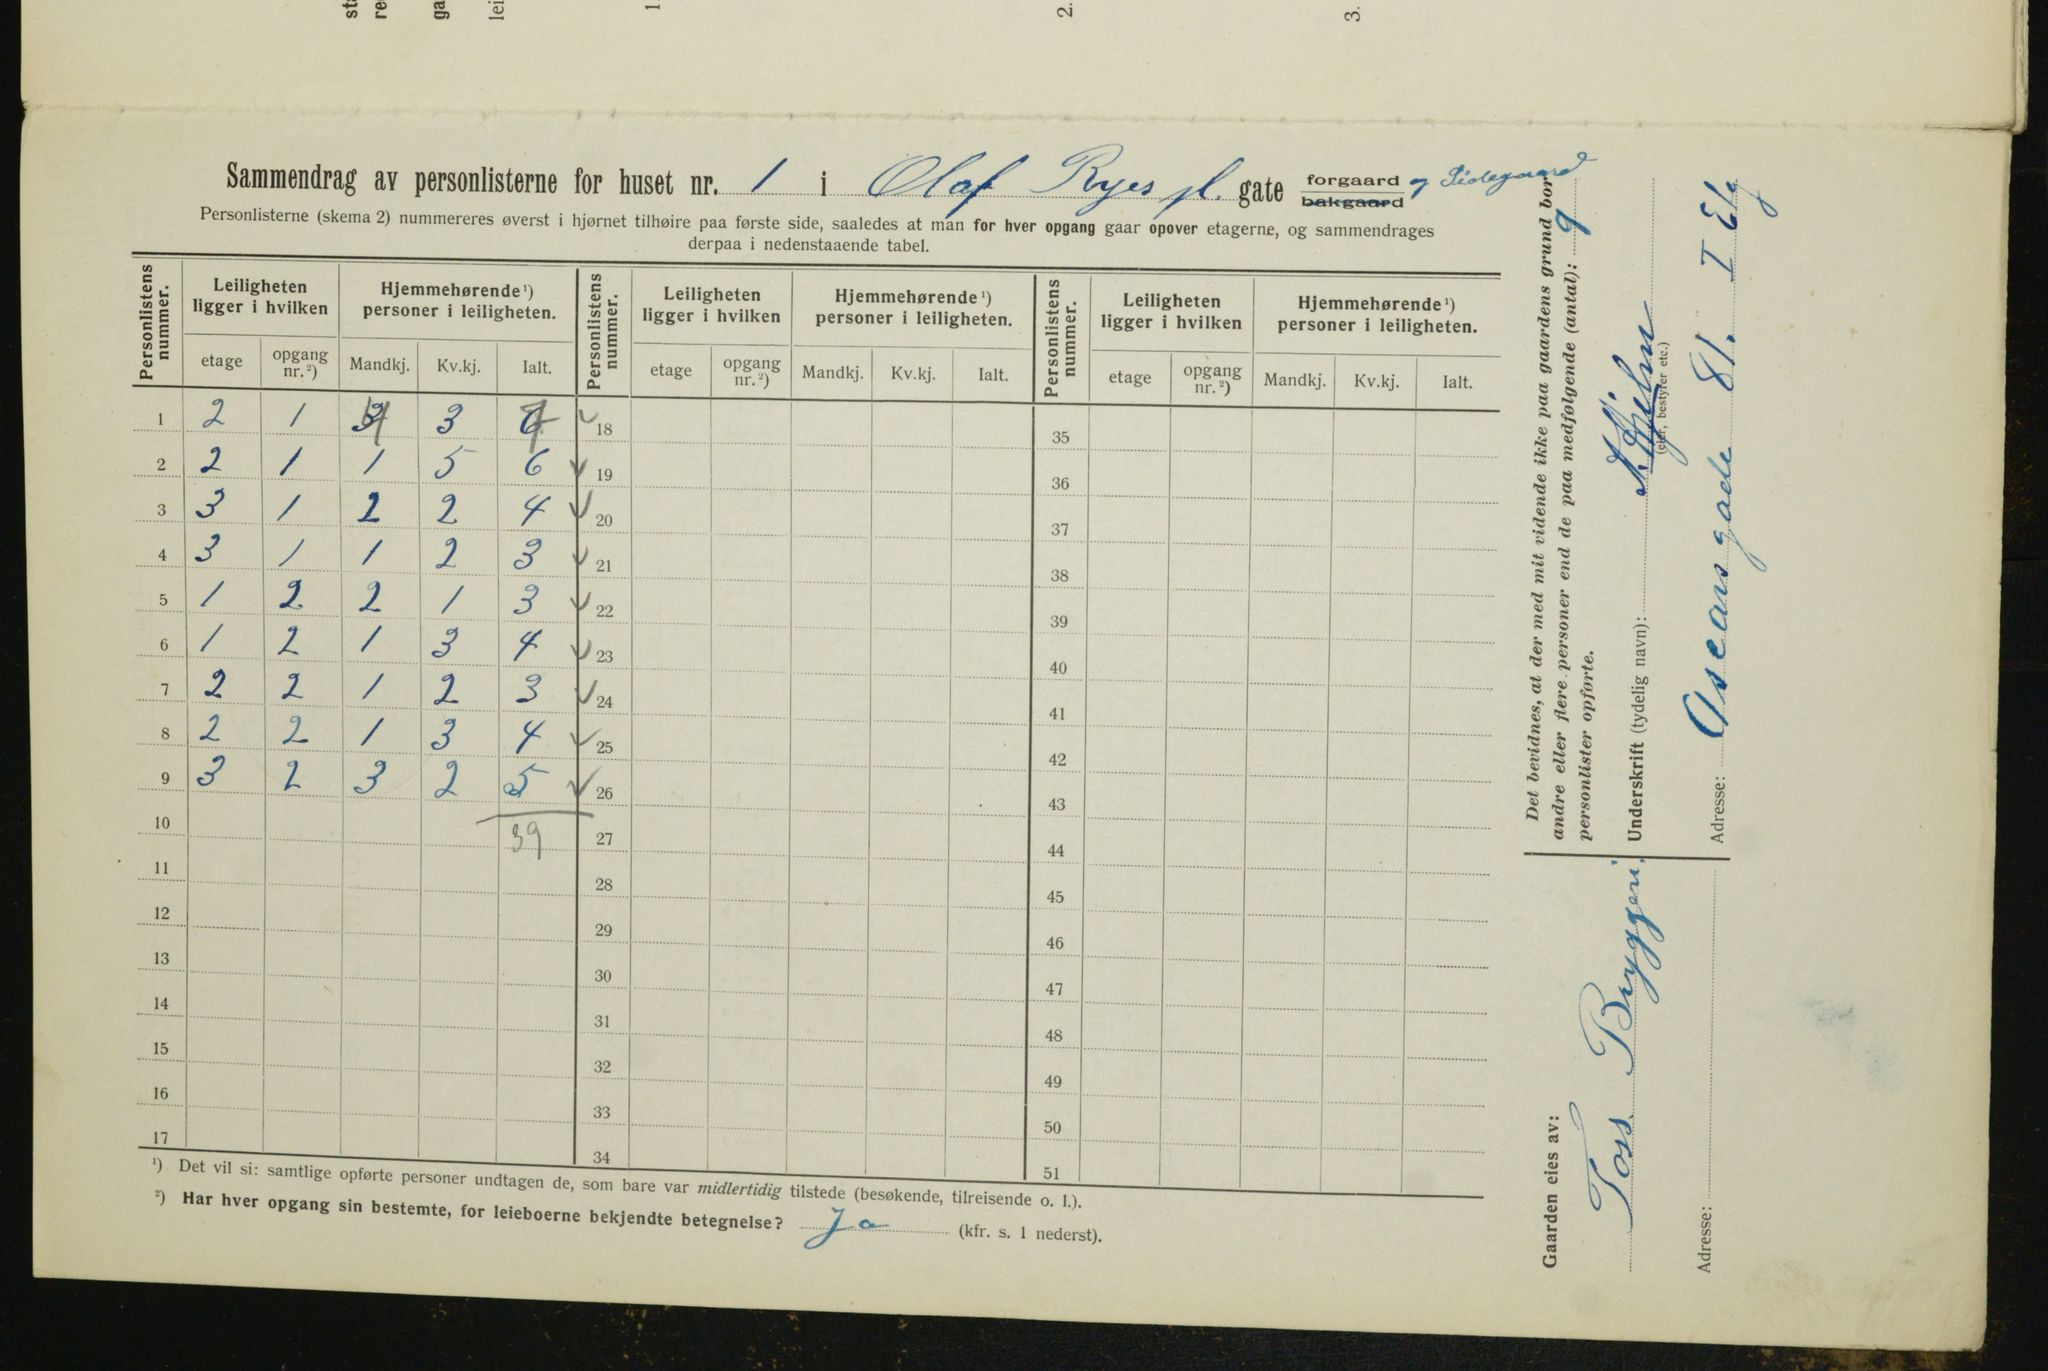 sta
re
ga
lei
1
2.
3.
Sammendrag av personlisterne for huset nr. 1 i Olaf Ryes pl. gate forgaard bakgaard og Sidegaard
Personlisterne (skema 2) nummereres øverst i hjørnet tilhøire paa første side, saaledes at man for hver opgang gaar opover etagerne, og sammendrages
derpaa i nedenstaaende tabel.
Personlistens nummer. Leiligheten ligger i hvilken Hjemmehørende ¹) personer i leiligheten. Personlistens nummer. Leiligheten ligger i hvilken Hjemmehørende ¹) personer i leiligheten. Personlistens nummer. Leiligheten ligger i hvilken Hjemmehørende ¹) personer i leiligheten.
etage opgang nr. ²) Mandkj. Kv.kj. Ialt. etage opgang nr. ²) Mandkj. Kv.kj. Ialt. etage opgang nr. ²) Mandkj. Kv.kj. Ialt.
1 2 1 4 3 7 18 35
2 2 1 1 5 6 19 36
3 3 1 2 2 4 20 37
4 3 1 1 2 3 21 38
5 1 2 2 1 3 22 39
6 1 2 1 3 4 23 40
7 2 2 1 2 3 24 41
8 2 2 1 3 4 25 42
9 3 2 3 2 5 26 43
10 39 27 44
11 28 45
12 29 46
13 30 47
14 31 48
15 32 49
16 33 50
17 34 51
¹) Det vil si: samtlige opførte personer undtagen de, som bare var midlertidig tilstede (besøkende, tilreisende o. l.).
²) Har hver opgang sin bestemte, for leieboerne bekjendte betegnelse? Ja (kfr. s. 1 nederst).
Det bevidnes, at der med mit vidende ikke paa gaardens grund bor
andre eller flere personer end de paa medfølgende (antal): 9
personlister opførte.
Underskrift (tydelig navn):
(eier, bestyrer etc.)
Adresse: Oscarsgade 81. I Etg
Gaarden eies av:
Foss Bryggeri.
Adresse: